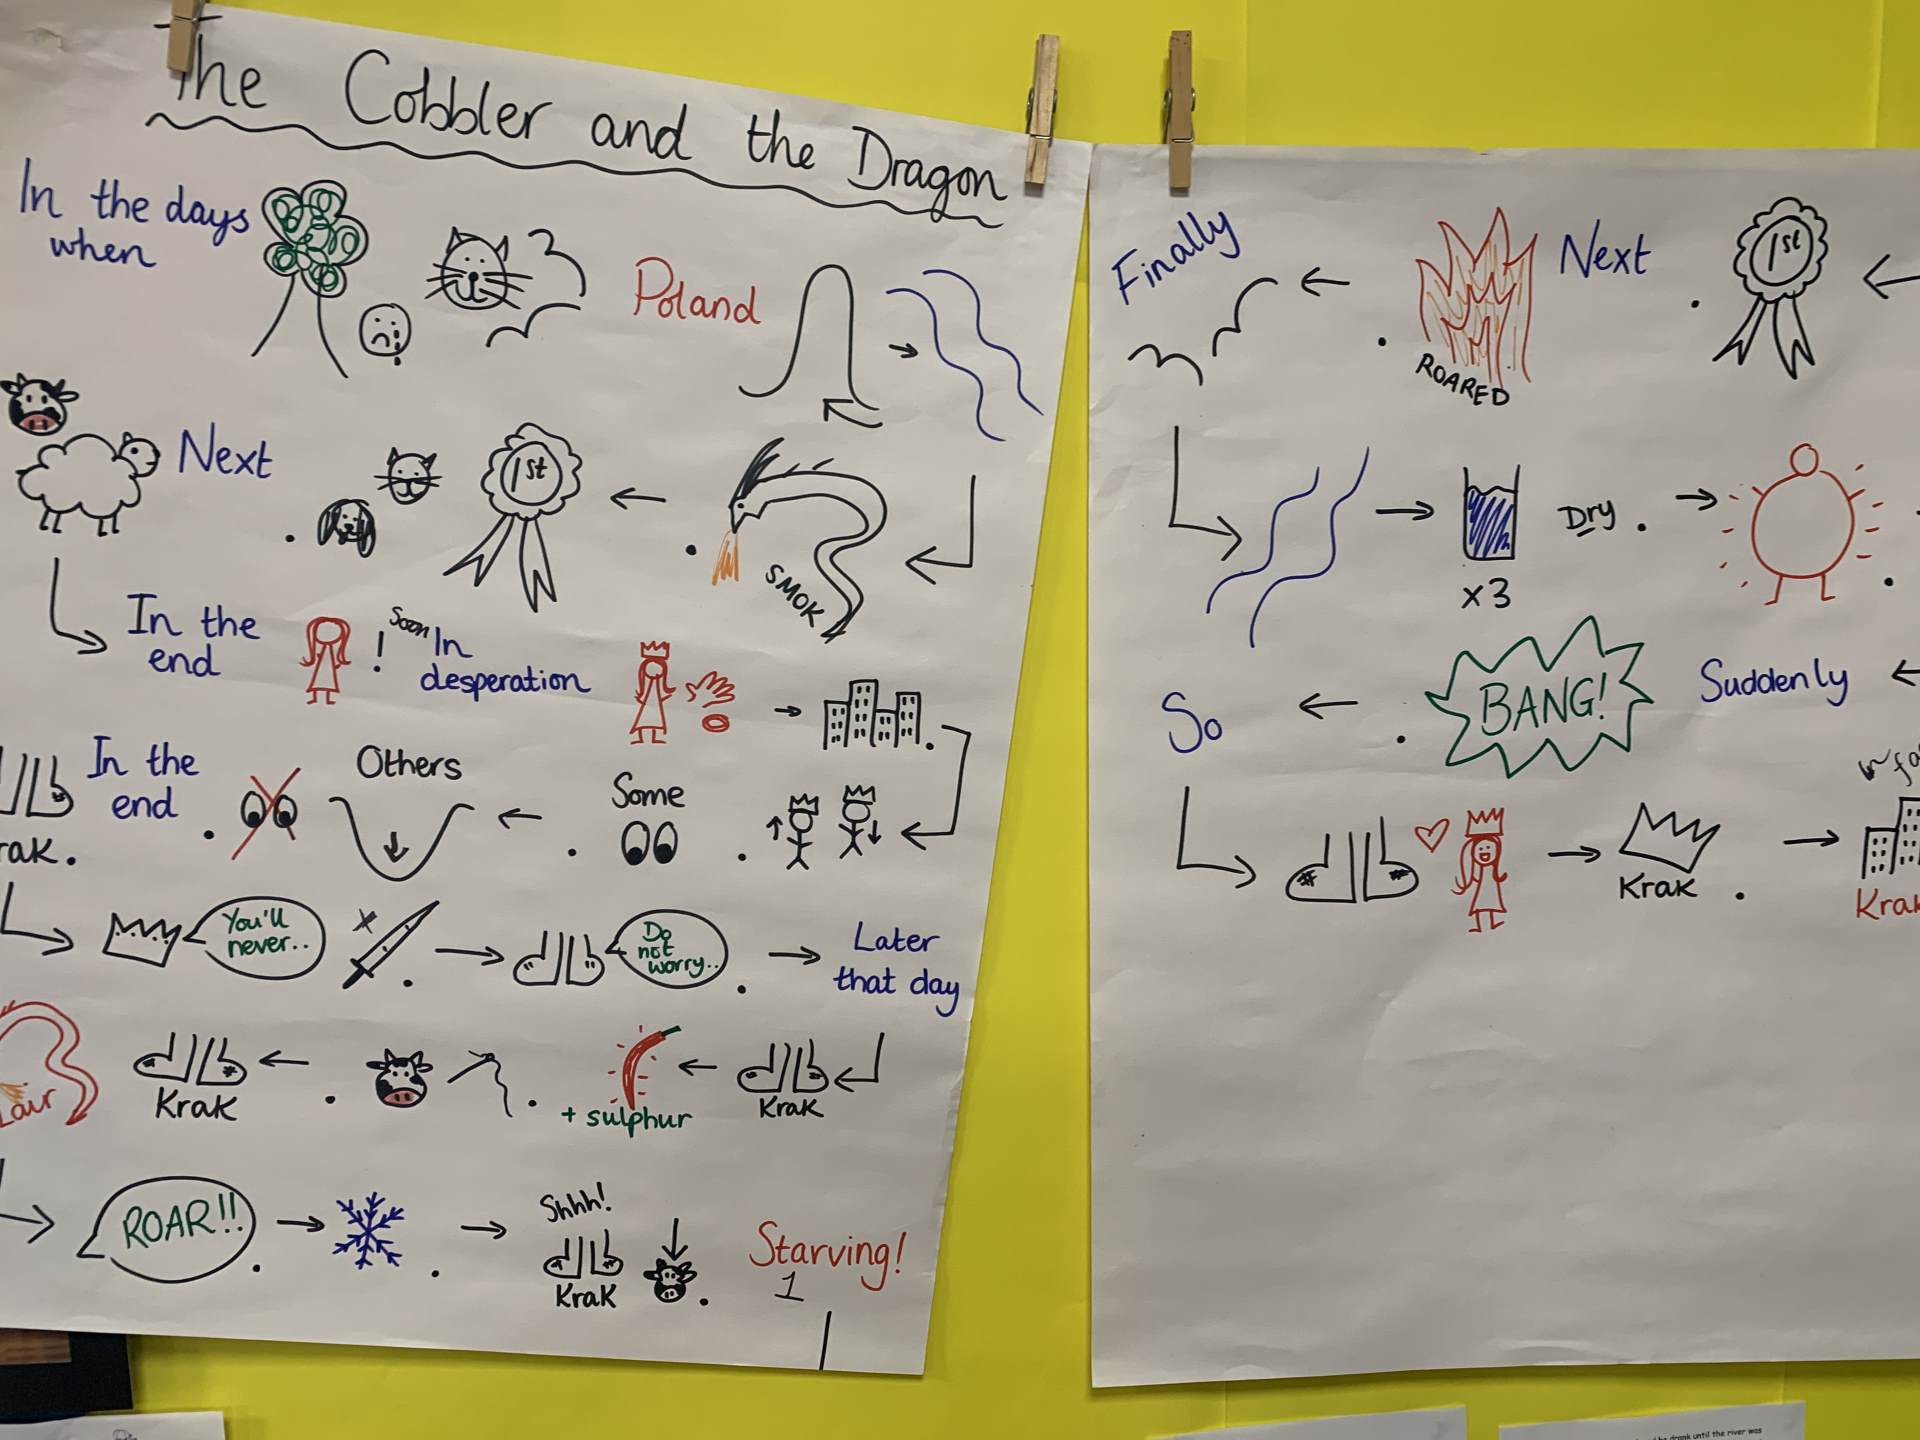 The Cobbler and the Dragon
In the days
when
Poland
Next
1st
SMOK
In the
end
!
Soon In
desperation
In the
end
Others
Some
You'll
never..
Do
not
worry..
Later
that day
Lair
Krak
+ sulphur
Krak
ROAR!!
Shhh!
Krak
Starving!
1
Finally
ROARED
Next
1st
x3
Dry.
So
BANG!
Suddenly
Krak